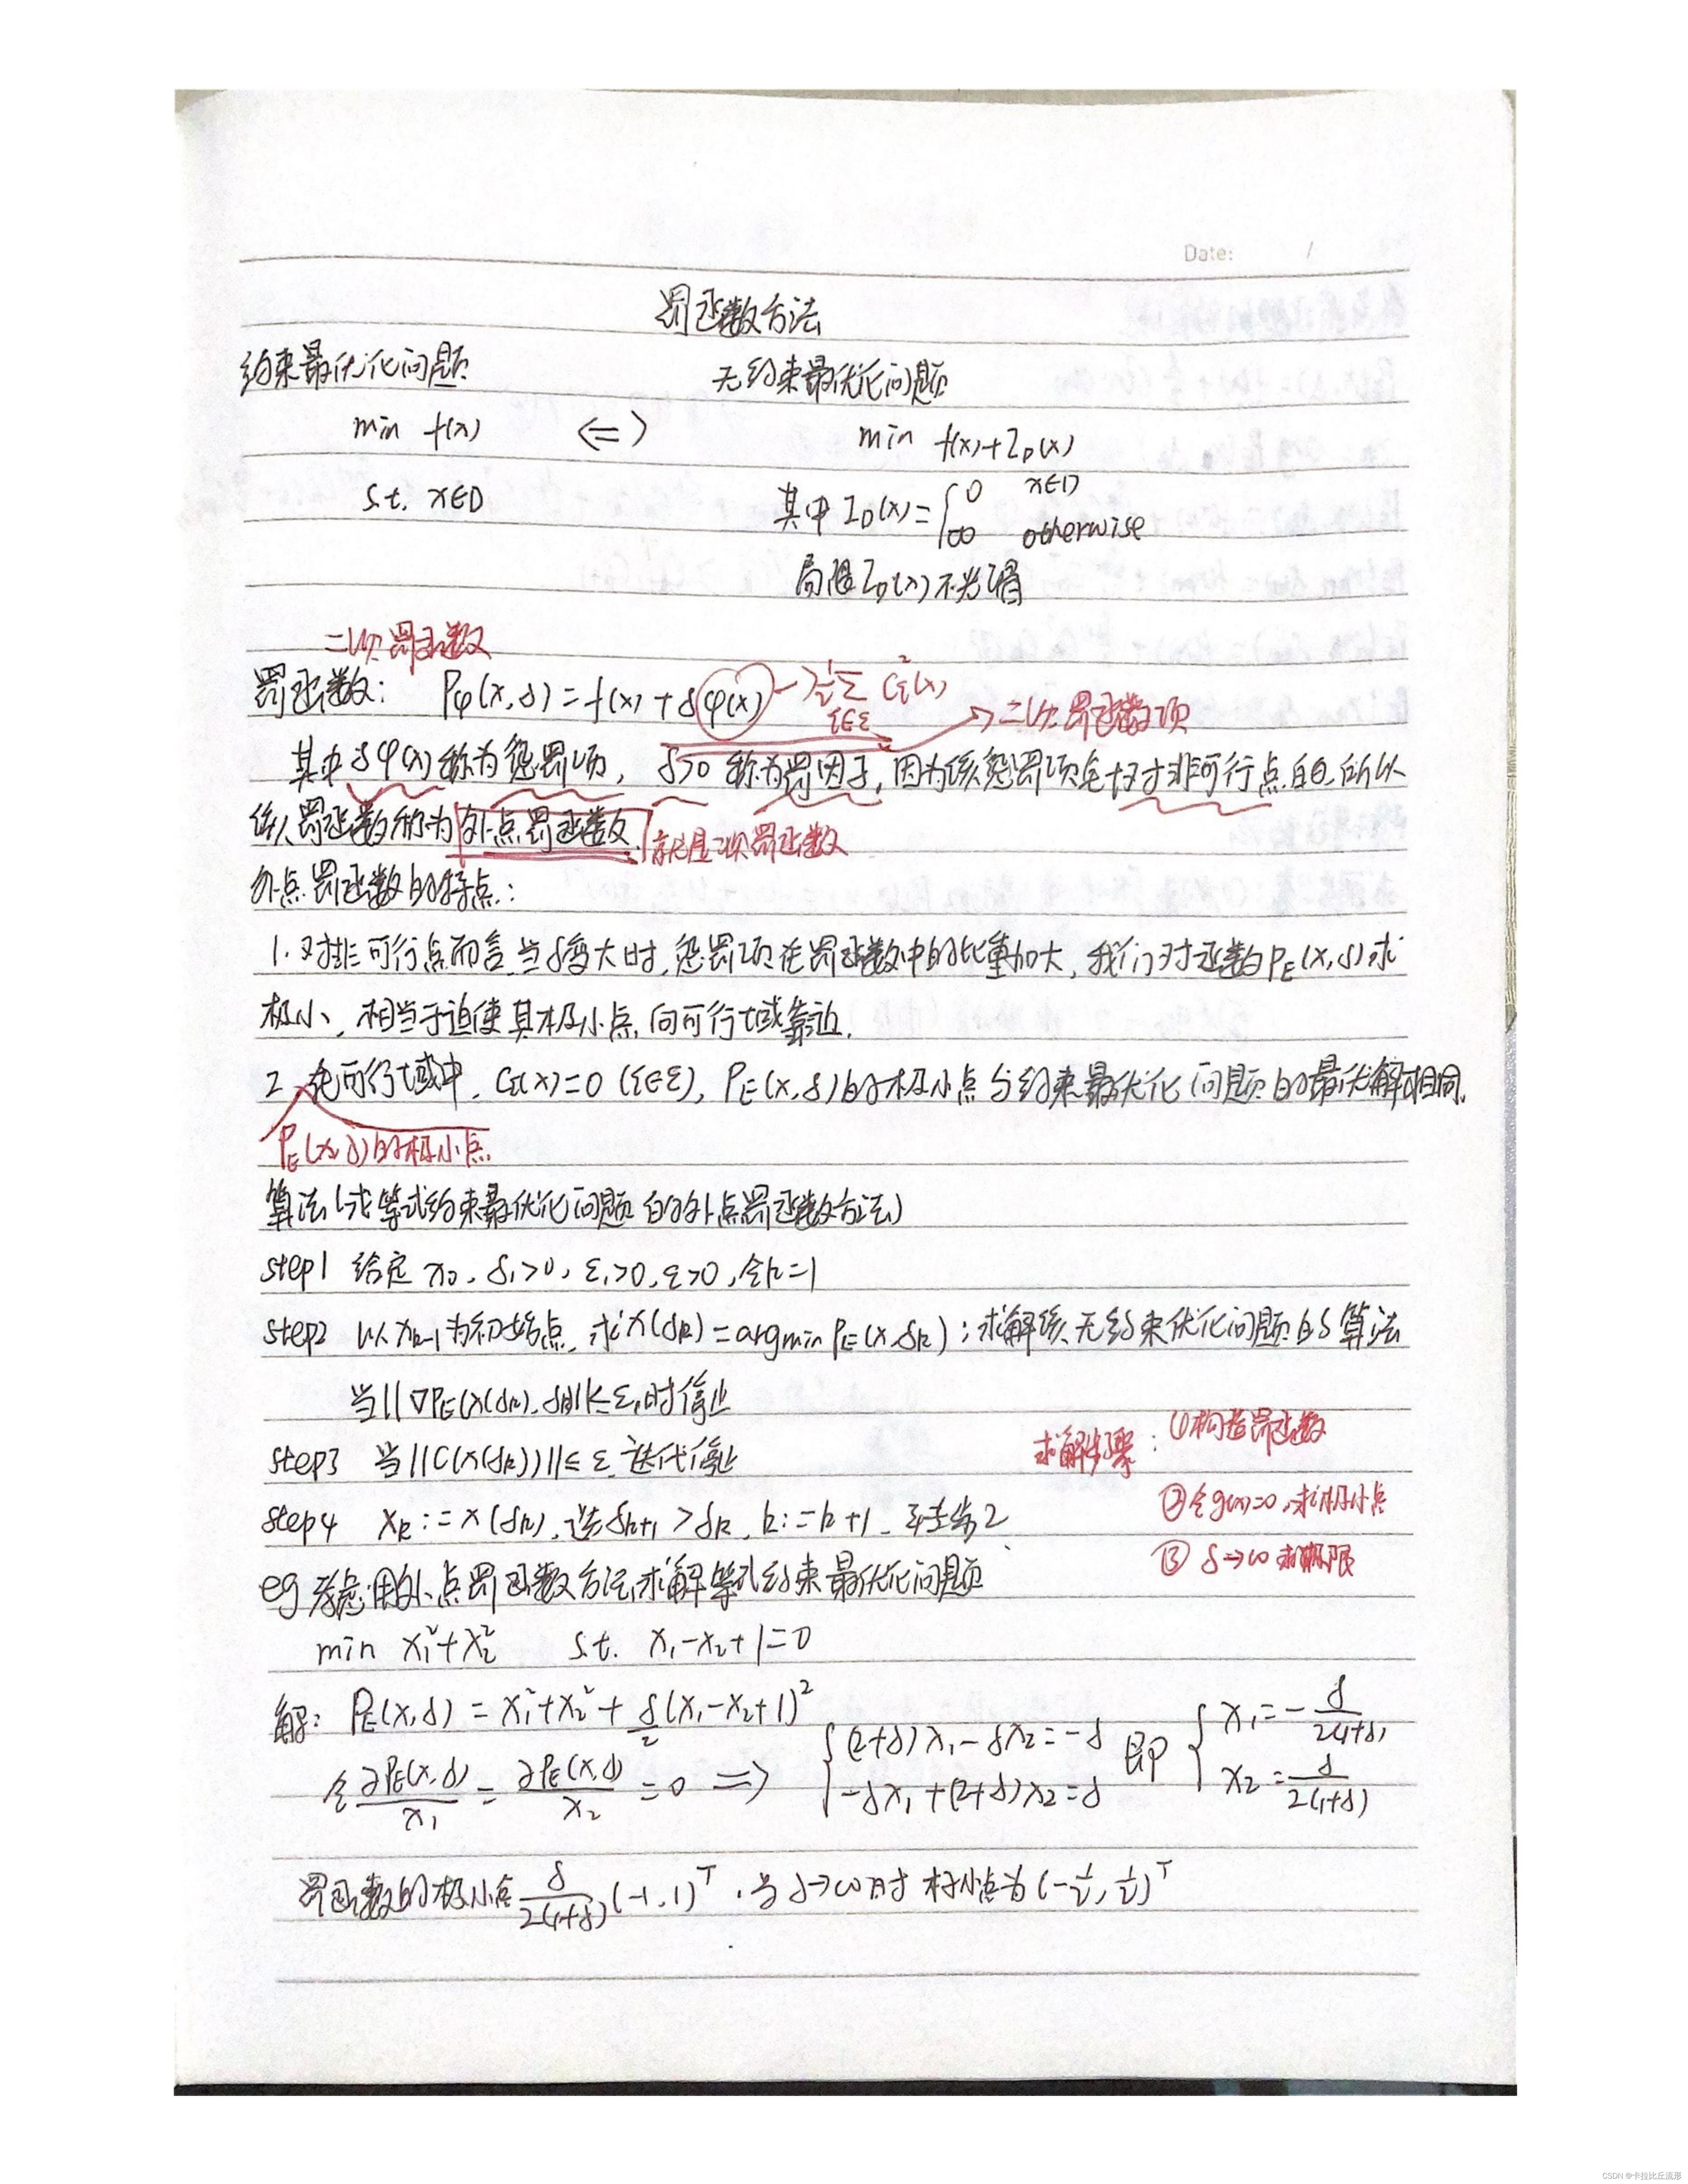 Date: /
罚函数方法
约束最优化问题 无约束最优化问题
min f(x) <=> min f(x)+I_D(x)
s.t. x∈D 其中 I_D(x)={0 x∈D
∞ otherwise
局限 I_D(x) 不光滑
二次罚函数
罚函数: Pφ(x,δ)=f(x)+δφ(x) → 1/2 Σ_{i∈ε} C_i²(x)
→ 二次罚函数项
其中δφ(x)称为惩罚项, δ>0 称为罚因子, 因为该惩罚项是对非可行点的, 所以
该罚函数称为外点罚函数. 就是二次罚函数
外点罚函数的特点:
1. 对非可行点而言, 当δ变大时, 惩罚项在罚函数中的比重加大, 我们对函数P_E(x,δ)求
极小, 相当于迫使其极小点向可行域靠近.
2. 在可行域中, C_i(x)=0 (i∈ε), P_E(x,δ)的极小点与约束最优化问题的最优解相同.
P_E(x,δ)的极小点
算法(求等式约束最优化问题的外点罚函数方法)
step1 给定 x₀, δ₁>0, ε₁>0, ε>0, 令k=1
step2 以x_{k-1}为初始点, 求x(δ_k)=argmin P_E(x,δ_k); 求解该无约束优化问题的算法
当||∇P_E(x(δ_k),δ_k)||≤ε₁时停止
step3 当||C(x(δ_k))||≤ε, 迭代停止
step4 x_k:=x(δ_k), 选δ_{k+1}>δ_k, k:=k+1, 转步2
求解步骤: ①构造罚函数
②令g(x)=0, 求极小点
③ δ→∞ 求极限
eg 考虑用外点罚函数方法求解等式约束最优化问题
min x₁²+x₂² s.t. x₁-x₂+1=0
解: P_E(x,δ)=x₁²+x₂²+δ/2(x₁-x₂+1)²
令 ∂P_E(x,δ)/x₁ = ∂P_E(x,δ)/x₂ =0 => {(2+δ)x₁-δx₂=-δ
-δx₁+(2+δ)x₂=δ 即 {x₁=-δ/2(1+δ)
x₂=δ/2(1+δ)
罚函数的极小点 δ/2(1+δ) (-1,1)^T, 当δ→∞时 极小点为(-1/2,1/2)^T
CSDN @卡拉比丘流形